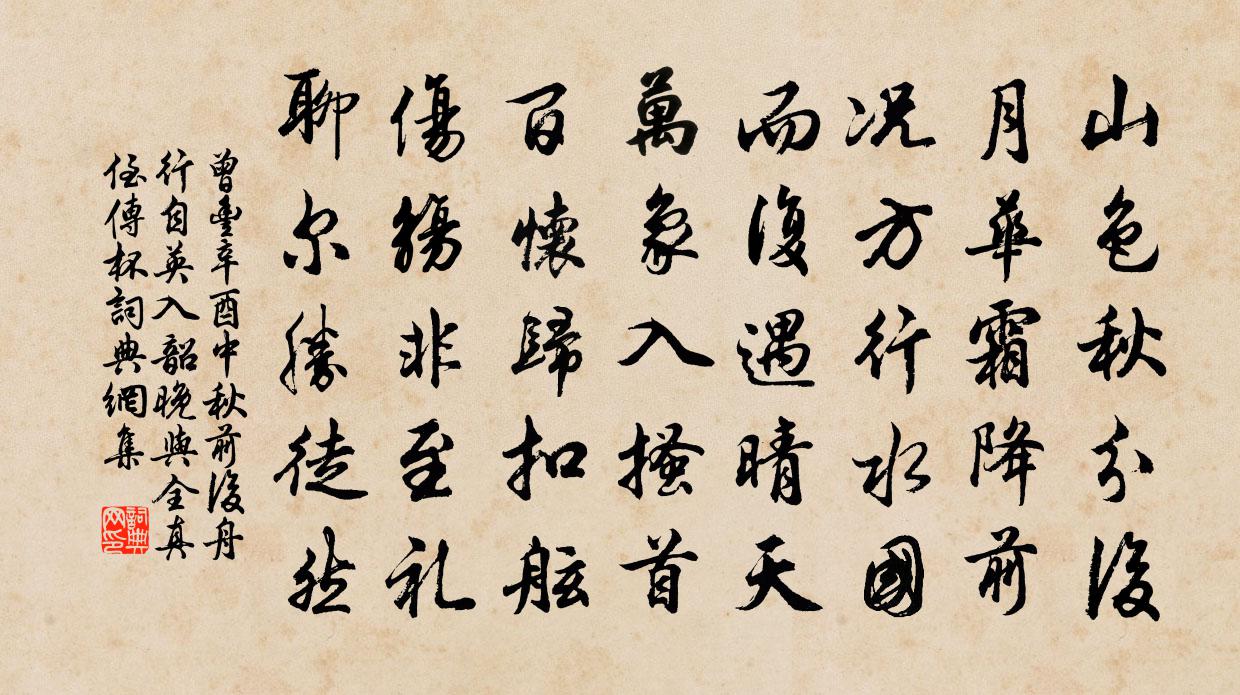 山色秋分後
月華霜降前
况方行水國
而復遇晴天
萬象入搔首
百懷歸扣舷
傷觴非至礼
聊尔勝徒然
曾豐辛酉中秋前後舟
行自英入韶晚與全真
侄傳杯詞典網集
詞典
网印